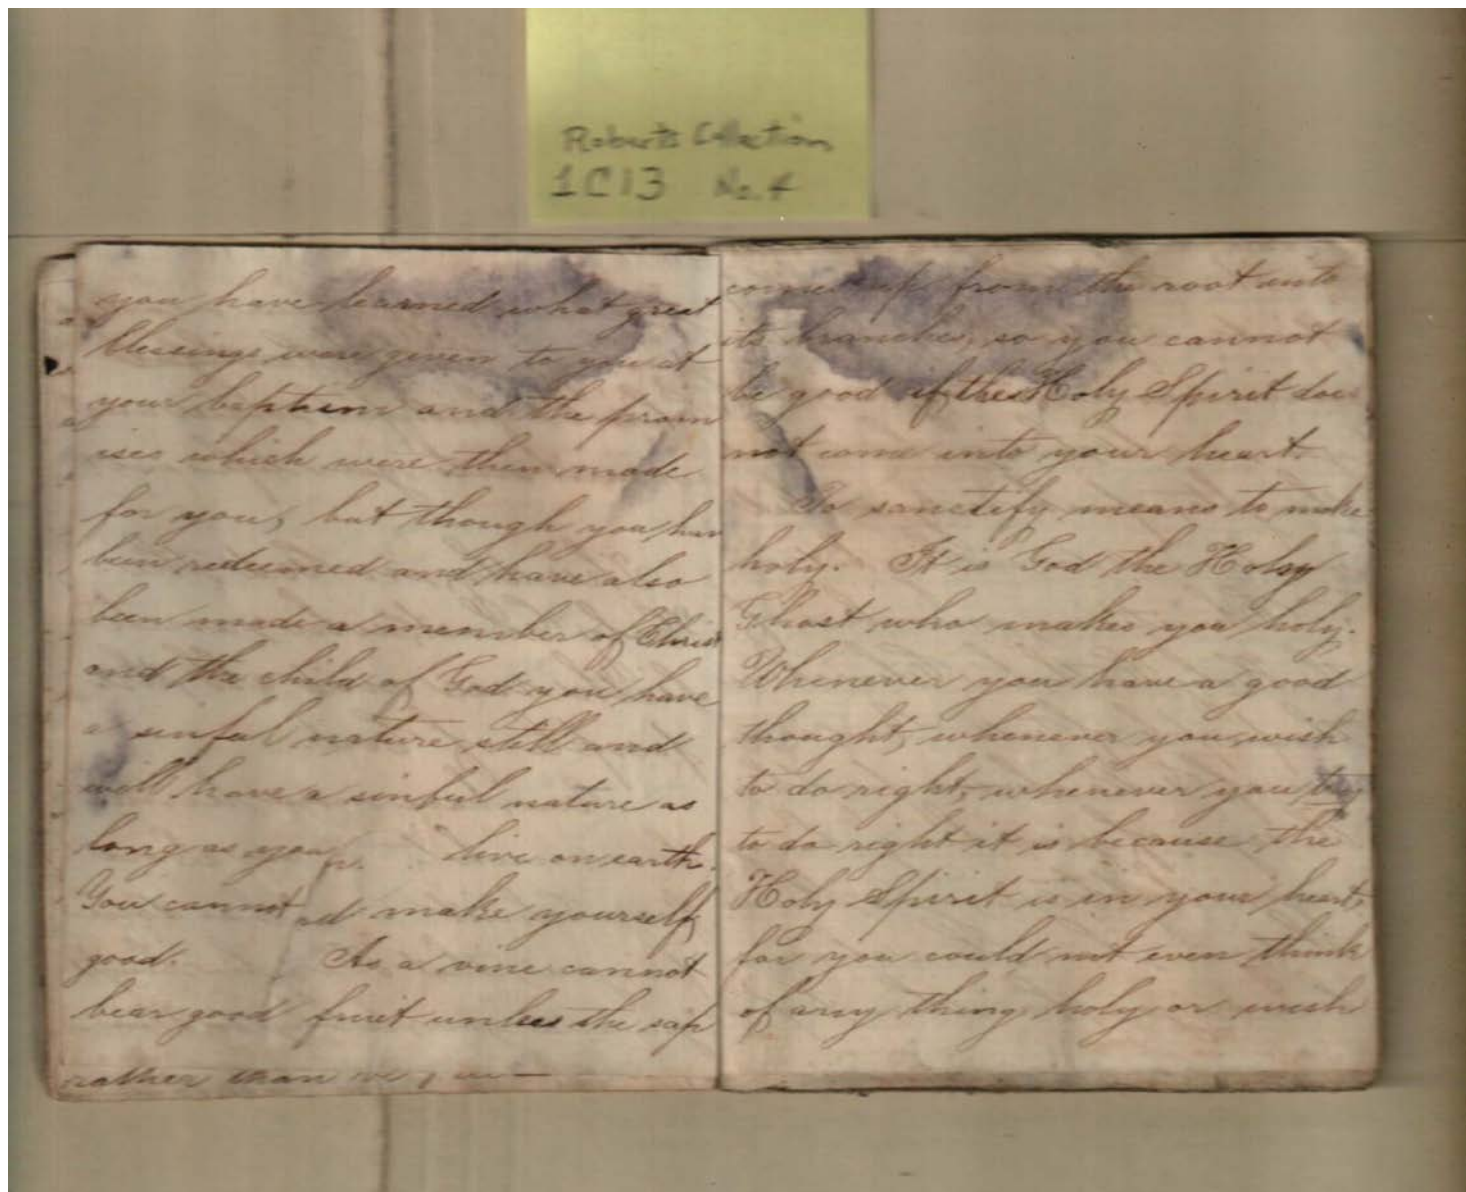 Roberts Collection
1C13 No. 4
you have learned what great
blessings were given to you at
your baptism and the prom
ises which were then made
for you, but though you hav
been redeemed and have also
been made a member of Christ
and the child of God you have
a sinful nature still and
will have a sinful nature as
long as you live on earth.
You cannot make yourself
good. As a vine cannot
bear good fruit unless the sap
rather than
comes up from the root into
its branches, so you cannot
be good if the Holy Spirit does
not come into your heart.
To sanctify means to make
holy. It is God the Holy
Ghost who makes you holy.
Whenever you have a good
thought, whenever you wish
to do right, whenever you try
to do right it is because the
Holy Spirit is in your heart,
for you could not even think
of any thing holy or wish